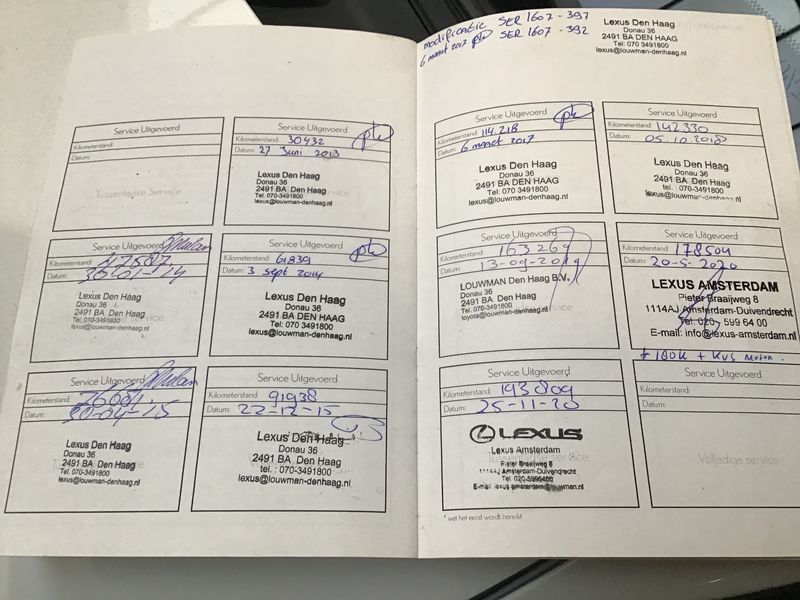 Service Uitgevoerd
Kilometerstand:
Datum:
Tussentijdse Service
Service Uitgevoerd
Kilometerstand: 30432
Datum: 27 Juni 2013
Lexus Den Haag
Donau 36
2491 BA Den Haag
Tel. 070-3491800
lexus@louwman-denhaag.nl
Service Uitgevoerd
Kilometerstand: 47587
Datum: 30-01-14
Lexus Den Haag
Donau 36
2491 BA Den Haag
Tel. 070-3491800
lexus@louwman-denhaag.nl
Service Uitgevoerd
Kilometerstand: 61839
Datum: 3 sept 2014
Lexus Den Haag
Donau 36
2491 BA DEN HAAG
Tel: 070 3491800
lexus@louwman-denhaag.nl
Service Uitgevoerd
Kilometerstand:
Datum: 30-04-15
Lexus Den Haag
Donau 36
2491 BA Den Haag
Tel. 070-3491800
lexus@louwman-denhaag.nl
Service Uitgevoerd
Kilometerstand: 91938
Datum: 22-12-15
Lexus Den Haag
Donau 36
2491 BA Den Haag
tel. : 070-3491800
lexus@louwman-denhaag.nl
modificatie SER 1607-397
6 maart 2017 SER 1607-392
Lexus Den Haag
Donau 36
2491 BA DEN HAAG
Tel: 070 3491800
lexus@louwman-denhaag.nl
Service Uitgevoerd
Kilometerstand: 114.218
Datum: 6 maart 2017
Lexus Den Haag
Donau 36
2491 BA DEN HAAG
Tel: 070 3491800
lexus@louwman-denhaag.nl
Service Uitgevoerd
Kilometerstand: 142330
Datum: 05.10.2018
Lexus Den Haag
Donau 36
2491 BA Den Haag
Tel. 070-3491800
lexus@louwman-denhaag.nl
Service Uitgevoerd
Kilometerstand: 163269
Datum: 13-09-2019
LOUWMAN Den Haag B.V.
Donau 36
2491 BA Den Haag
Tel. 070-3491800
toyota@louwman-denhaag.nl
Service Uitgevoerd
Kilometerstand: 178504
Datum: 20-5-2020
LEXUS AMSTERDAM
Pieter Braaijweg 8
1114AJ Amsterdam-Duivendrecht
Tel: 020 - 599 64 00
E-mail: info@lexus-amsterdam.nl
+ 180K +
Service Uitgevoerd
Kilometerstand: 193809
Datum: 25-11-20
LEXUS
Lexus Amsterdam
Pieter Braaijweg 8
1114AJ Amsterdam-Duivendrecht
Tel 020-5996400
E-mail lexus.amsterdam@louwman.nl
Service Uitgevoerd
Kilometerstand:
Datum:
Volledige service
* wat het eerst wordt bereikt